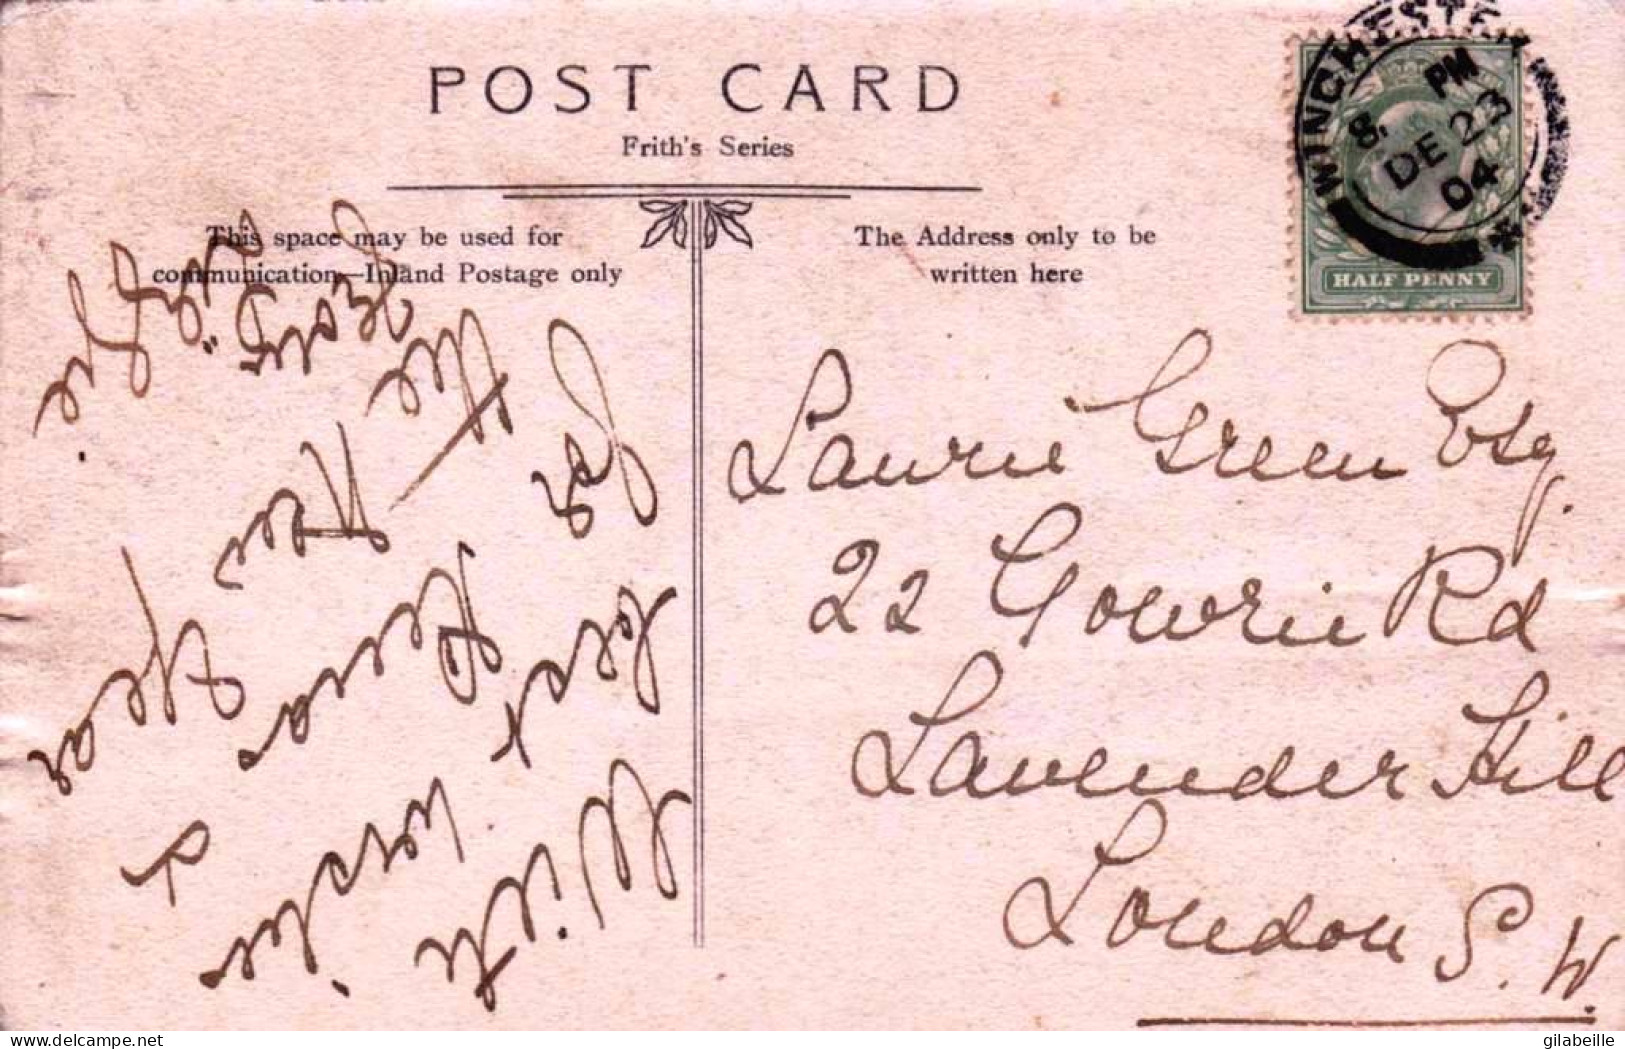 POST CARD
Frith's Series
This space may be used for
communication—Inland Postage only
The Address only to be
written here
WINCHESTER
8. PM
DE 23
04
HALF PENNY
Laurie Green Esq.
22 Gowrie Rd
Lavender Hill
London S. W.
With
best wishes
for Xmas &
the New Year
from
gilabeille